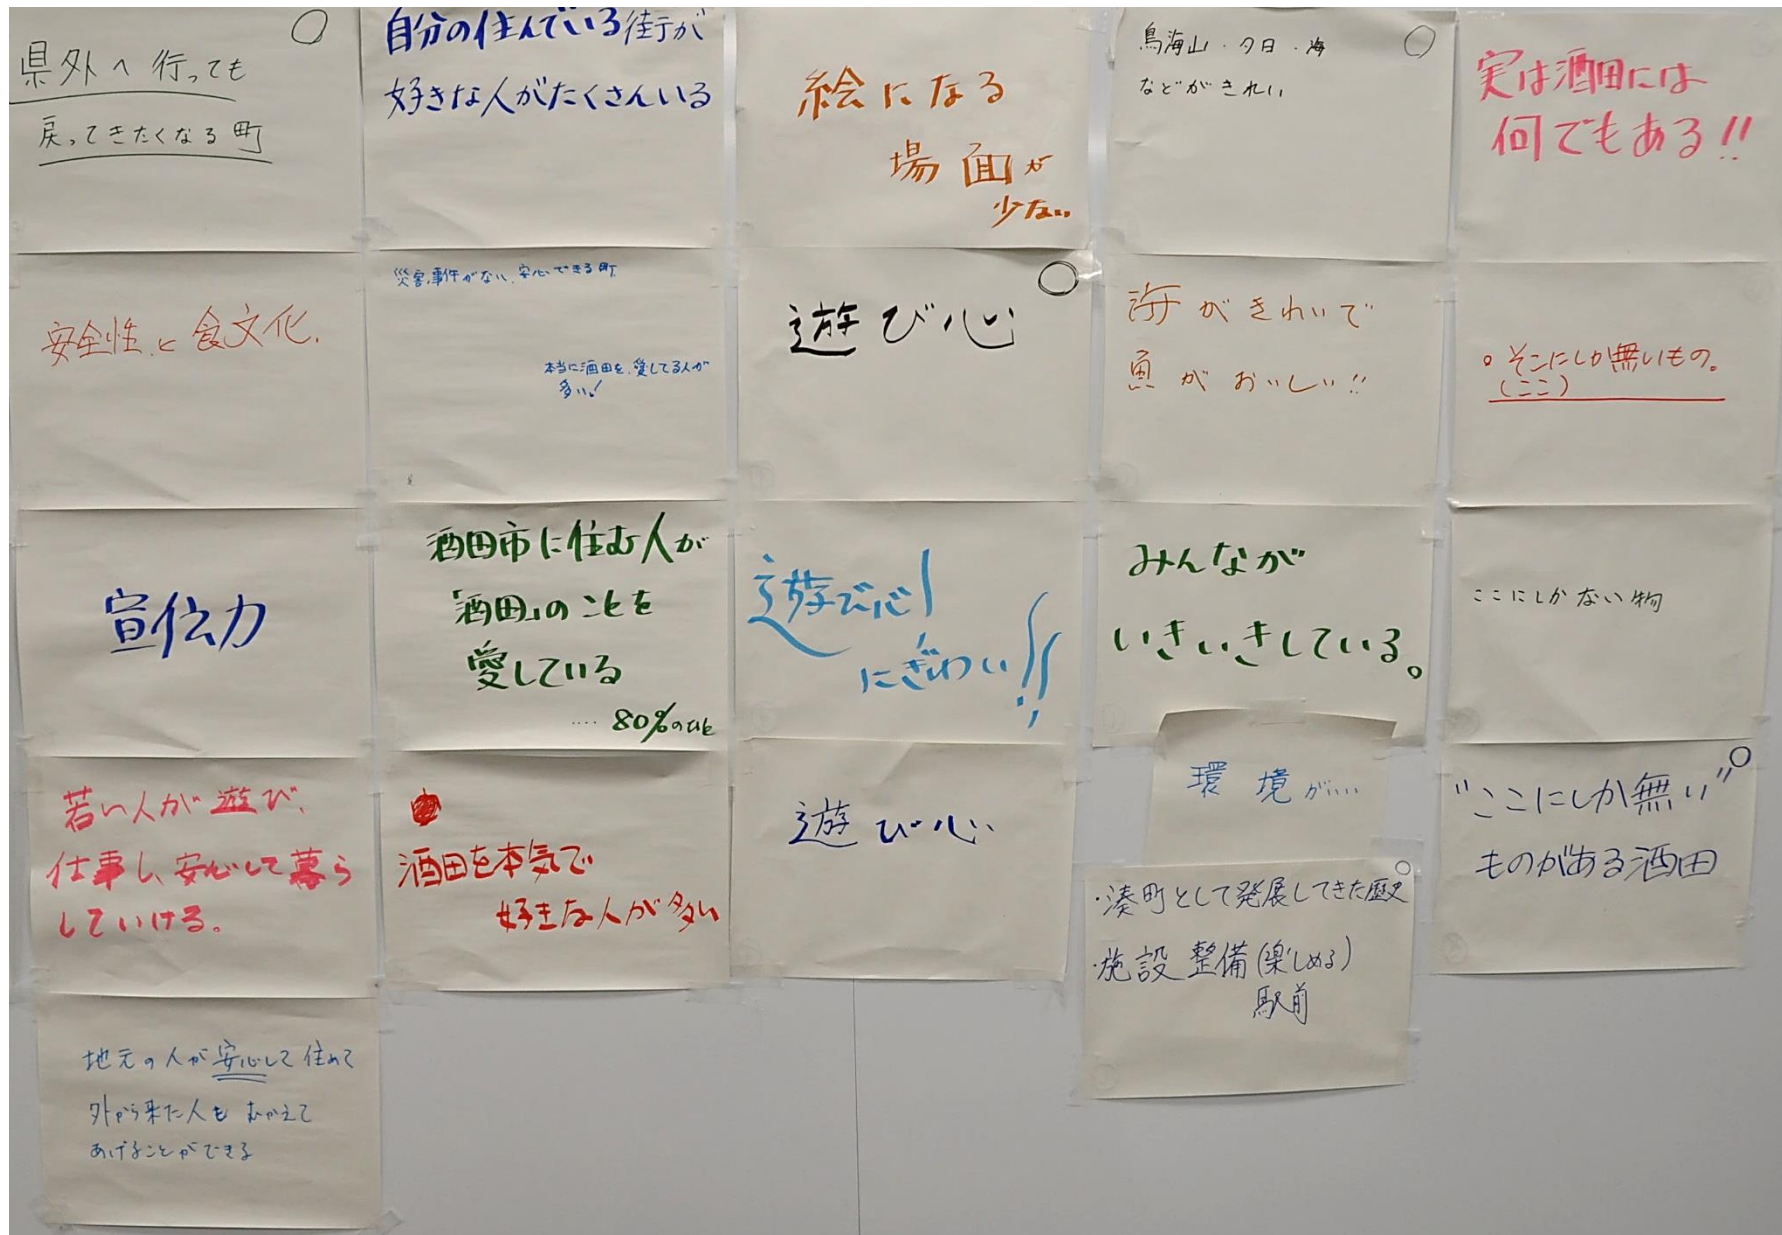 県外へ行っても
戻ってきたくなる町
安全性と食文化.
宣伝力
若い人が遊び、
仕事し、安心して暮ら
していける。
地元の人が安心して住めて
外から来た人もむかえて
あげることができる
自分の住んでいる街が
好きな人がたくさんいる
災害、事件がない、安心できる町
本当に酒田を、愛してる人が
多い!
酒田市に住む人が
「酒田」のことを
愛している
‥‥80%のひと
酒田を本気で
好きな人が多い
絵になる
場面が
少ない
遊び心
遊び心
にぎわい!!
遊び心
鳥海山・夕日・海
などがきれい
海がきれいで
魚がおいしい!!
みんなが
いきいきしている。
環境が‥‥
・湊町として発展してきた歴史
・施設整備(楽しめる)
駅前
実は酒田には
何でもある!!
。そこにしか無いもの。
(ここ)
ここにしかない物
"ここにしか無い"
ものがある酒田